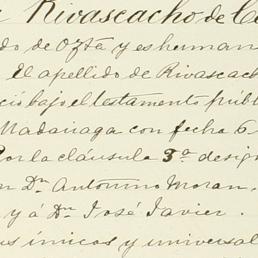 Rivascacho de Ce
do de Ozta y es herman
El apellido de Rivascach
ció bajo el testamento públ
Madariaga con fecha 6
Por la cláusula 3a desig
n Dn Antonino Moran.
y á Dn José Javier.
us únicos y universal